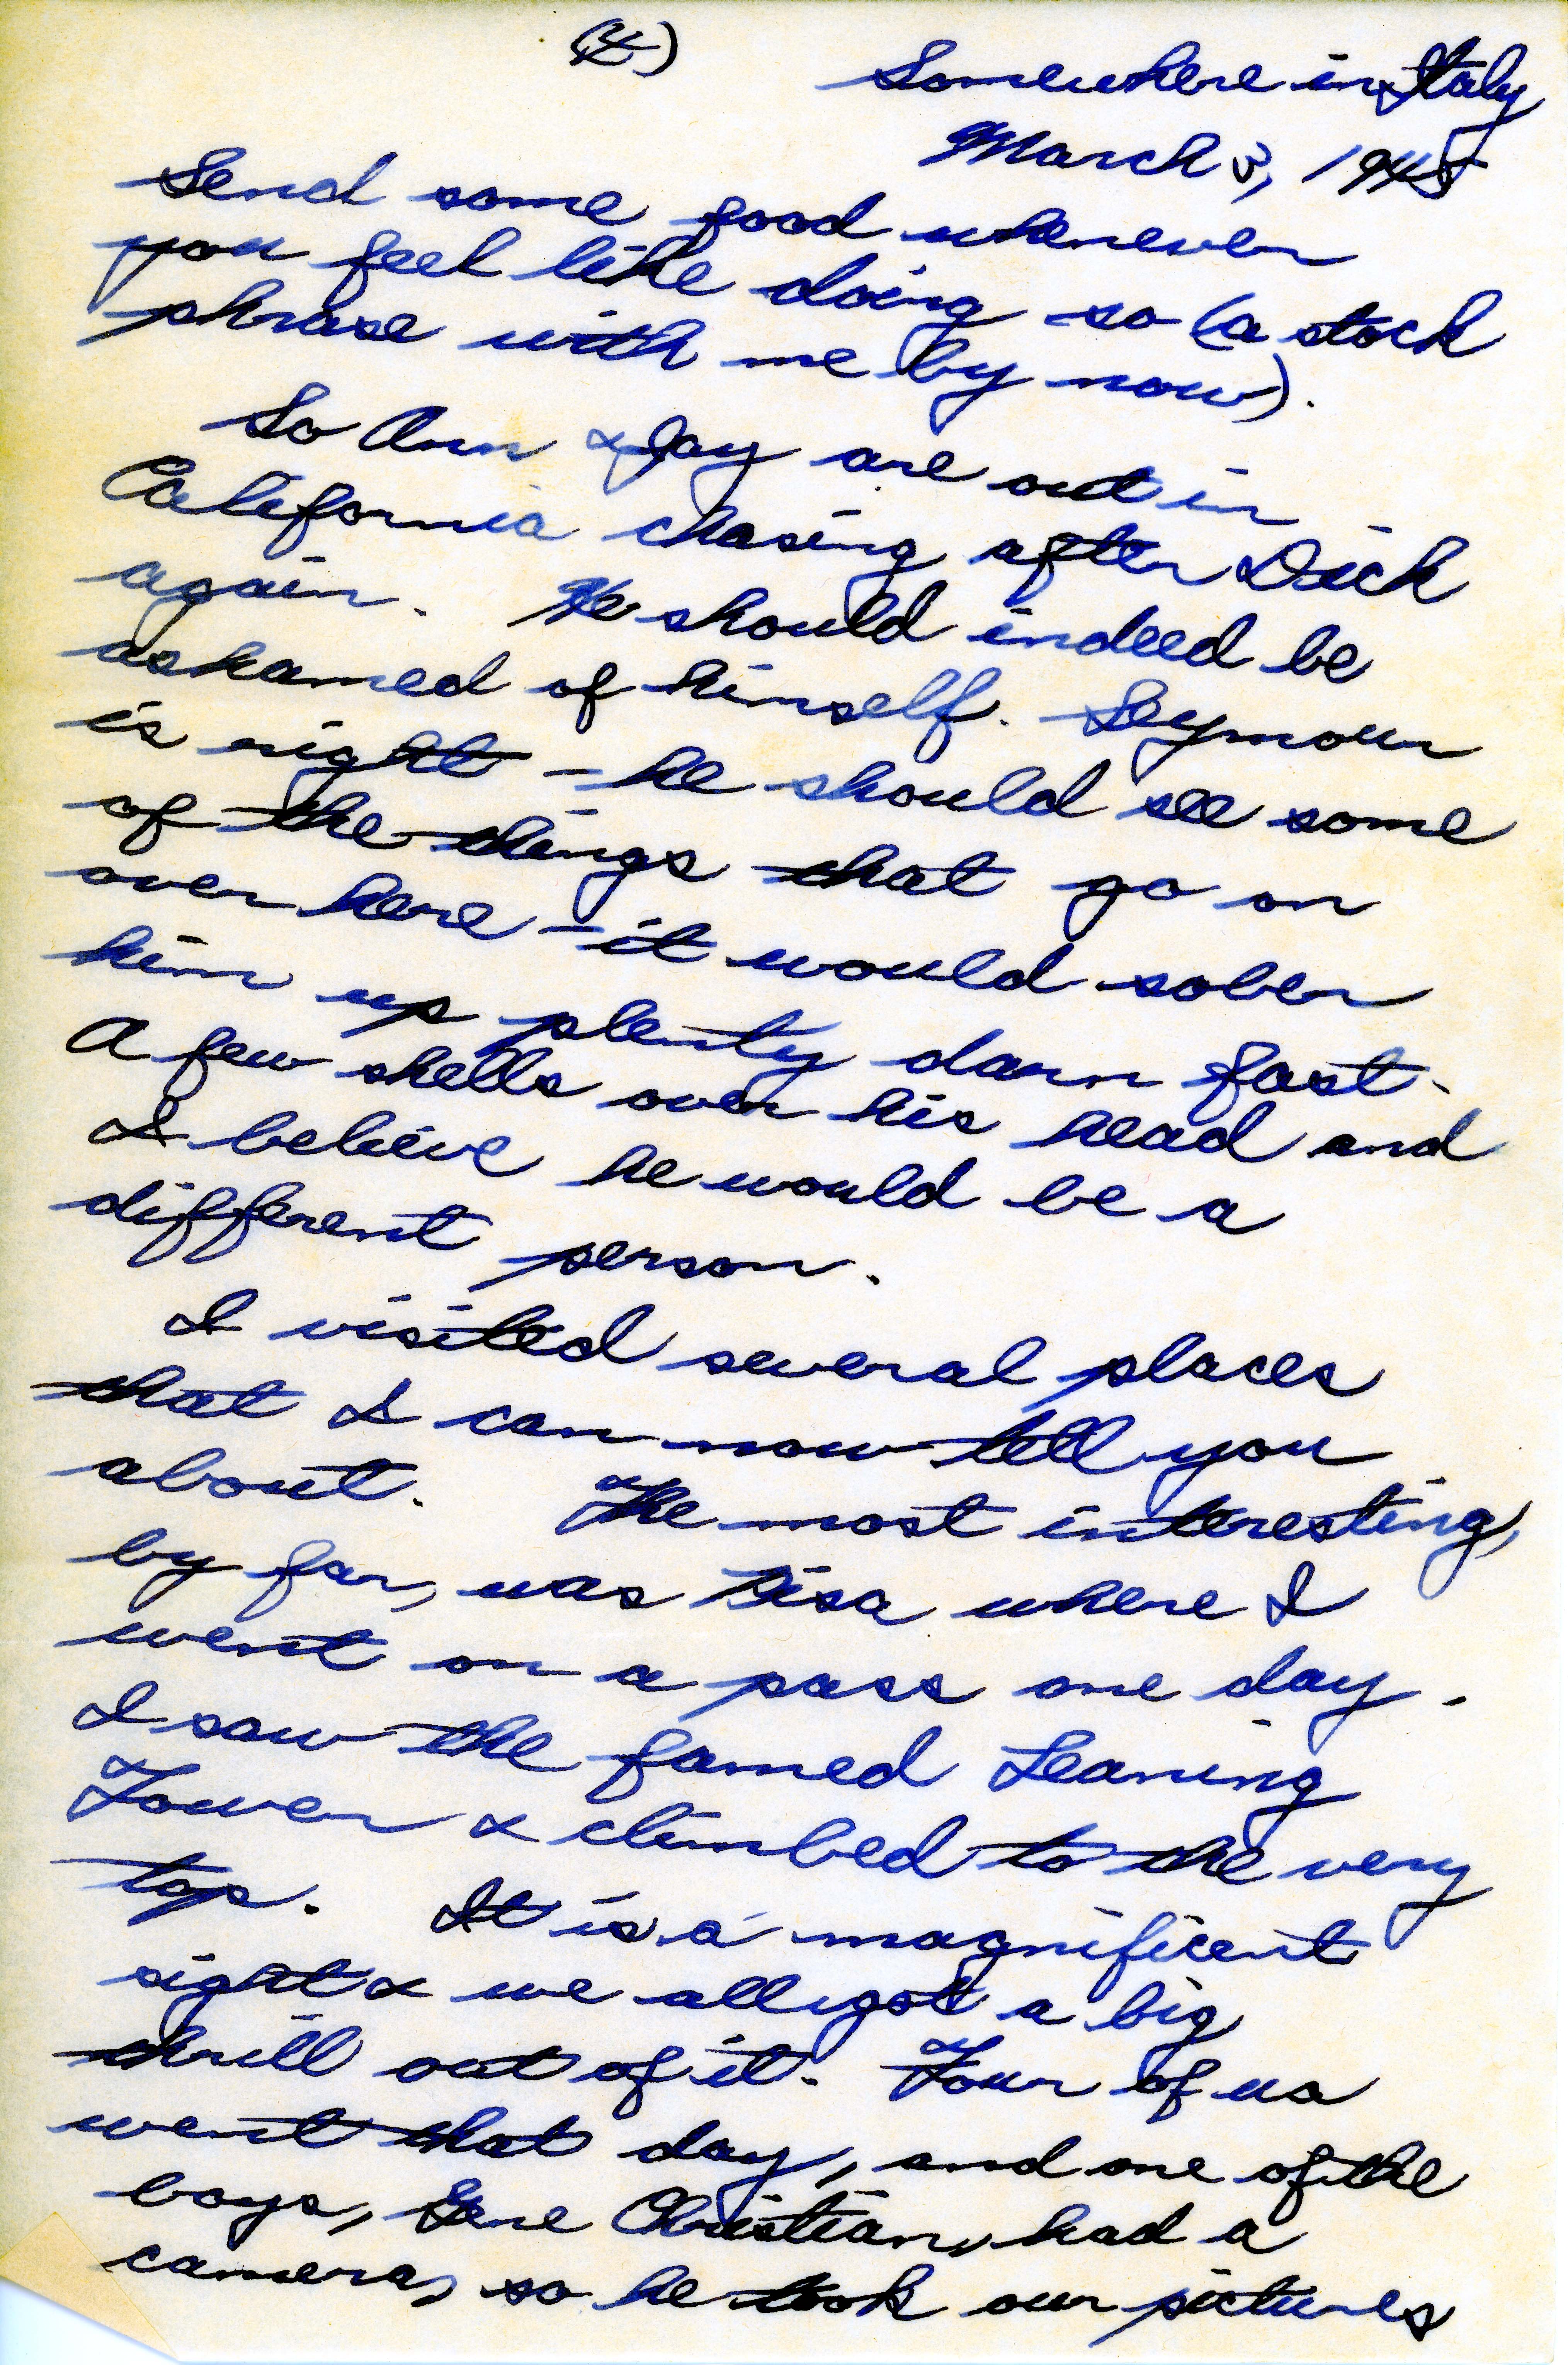 (4)
Somewhere in Italy
March 3, 1945
Send some food whenever
you feel like doing so (a stock
phrase with me by now).
So Ann & Jay are out in
California chasing after Dick
again. He should indeed be
ashamed of himself. Seymour
is right – he should see some
of the things that go on
over here – it would sober
him up plenty darn fast.
A few shells over his head and
I believe he would be a
different person.
I visited several places
that I can now tell you
about. The most interesting,
by far, was Pisa where I
went on a pass one day.
I saw the famed Leaning
Tower & climbed to the very
top. It is a magnificent
sight & we all got a big
thrill out of it. Four of us
went that day, and one of the
boys, Gene Christian, had a
camera, so he took our pictures